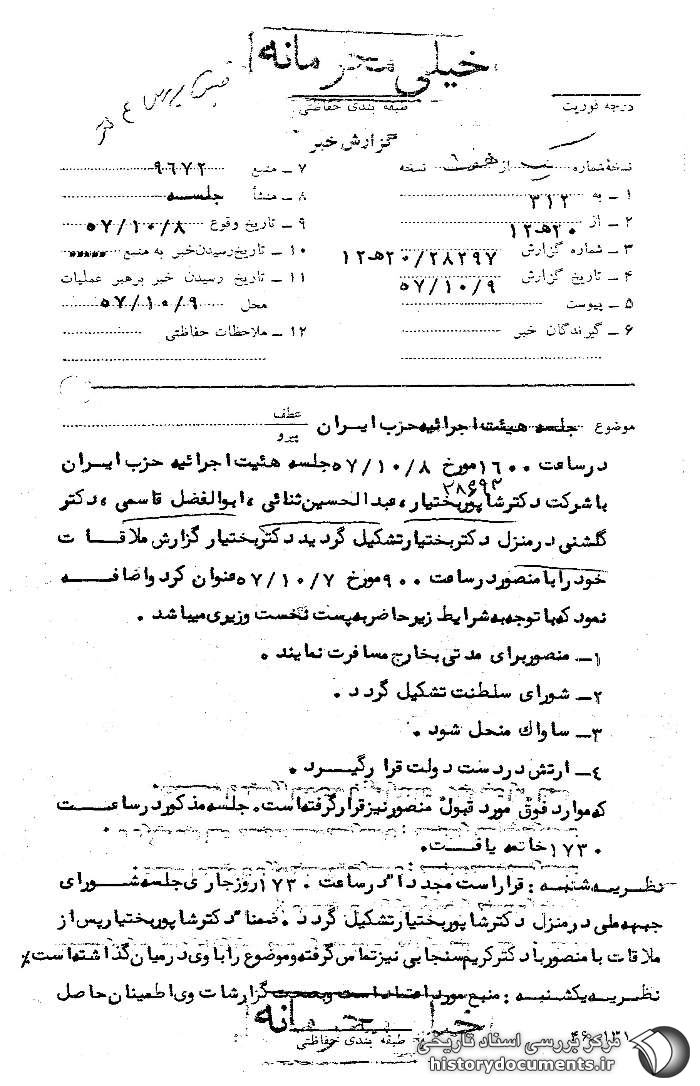 خیلی محرمانه
درجه فوریت
طبقه بندی حفاظتی
گزارش خبر
نسخهٔ شماره یک از هفت نسخه
۱ ـ به ۳۱۲
۲ ـ از ۲۰هـ۱۲
۳ ـ شماره گزارش ۲۸۲۹۷/۲۰هـ۱۲
۴ ـ تاریخ گزارش ۵۷/۱۰/۹
۵ ـ پیوست
۶ ـ گیرندگان خبر
۷ ـ منبع ۹۶۷۲
۸ ـ منشأ جلسه
۹ ـ تاریخ وقوع ۵۷/۱۰/۸
۱۰ ـ تاریخ رسیدن خبر به منبع
۱۱ ـ تاریخ رسیدن خبر برهبر عملیات
محل ۵۷/۱۰/۹
۱۲ ـ ملاحظات حفاظتی
موضوع جلسه هیئت اجرائیه حزب ایران
عطف
پیرو
در ساعت ۱۶۰۰ مورخ ۵۷/۱۰/۸ جلسه هئیت اجرائیه حزب ایران
۳۸۶۹۳
با شرکت دکتر شاپور بختیار، عبدالحسین ثنائی، ابوالفضل قاسمی، دکتر
گلشنی در منزل دکتر بختیار تشکیل گردید دکتر بختیار گزارش ملاقات
خود را با منصور در ساعت ۹۰۰ مورخ ۵۷/۱۰/۷ عنوان کرد و اضافه
نمود که با توجه به شرایط زیر حاضر به پست نخست وزیری میباشد.
۱ـ منصور برای مدتی بخارج مسافرت نمایند.
۲ـ شورای سلطنت تشکیل گردد.
۳ـ ساواک منحل شود.
٤ـ ارتش در دست دولت قرار گیرد.
که موارد فوق مورد قبول منصور نیز قرار گرفته است. جلسه مذکور در ساعت
۱۷۳۰ خاتمه یافت.
نظریه شنبه: قرار است مجدداً در ساعت ۱۷۳۰ روز جاری جلسه شورای
جبهه ملی در منزل دکتر شاپور بختیار تشکیل گردد. ضمناً دکتر شاپور بختیار پس از
ملاقات با منصور با دکتر کریم سنجابی نیز تماس گرفته و موضوع را با وی در میان گذاشته است٪
نظریه یکشنبه: منبع مورد اعتماد است و بصحت گزارشات وی اطمینان حاصل
خیلی محرمانه
طبقه بندی حفاظتی
۴۶-۱۳۱
مرکز بررسی اسناد تاریخی
historydocuments.ir